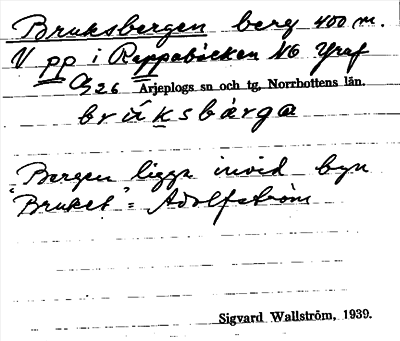 Bruksbergen berg 400 m.
V pp i Rappabäcken NO Graf
Og 26 Arjeplogs sn och tg, Norrbottens län.
brúksbàrga
Bergen ligga invid byn
"Bruket" = Adolfström
Sigvard Wallström, 1939.